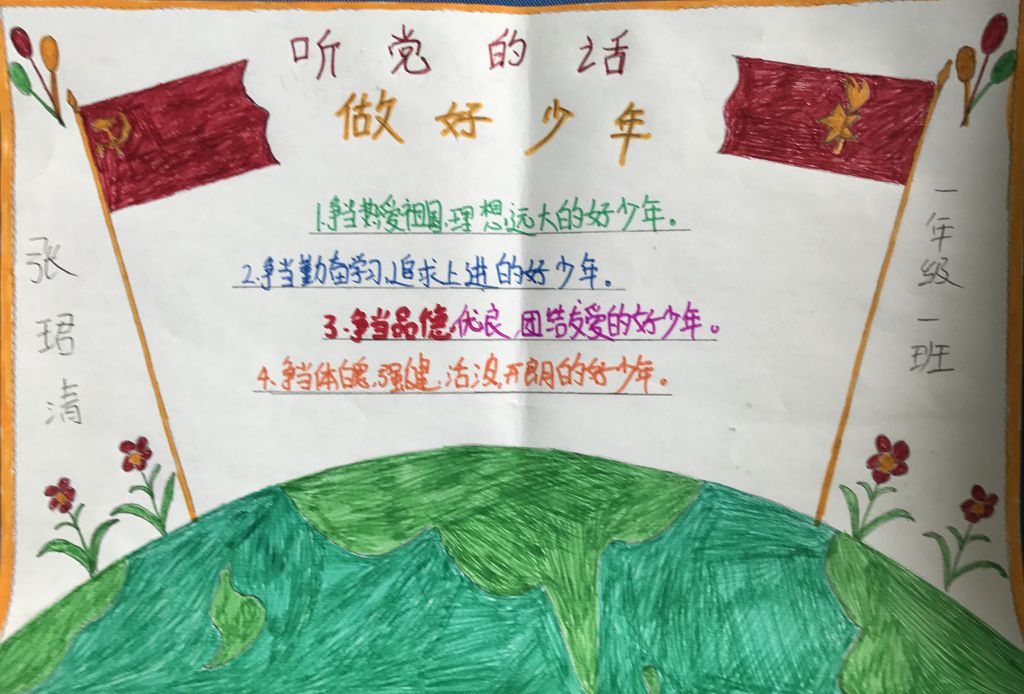 听党的话
做好少年
1.争当热爱祖国、理想远大的好少年。
2.争当勤奋学习、追求上进的好少年。
3.争当品德优良、团结友爱的好少年。
4.争当体魄强健、活泼开朗的好少年。
张珺清
一年级一班